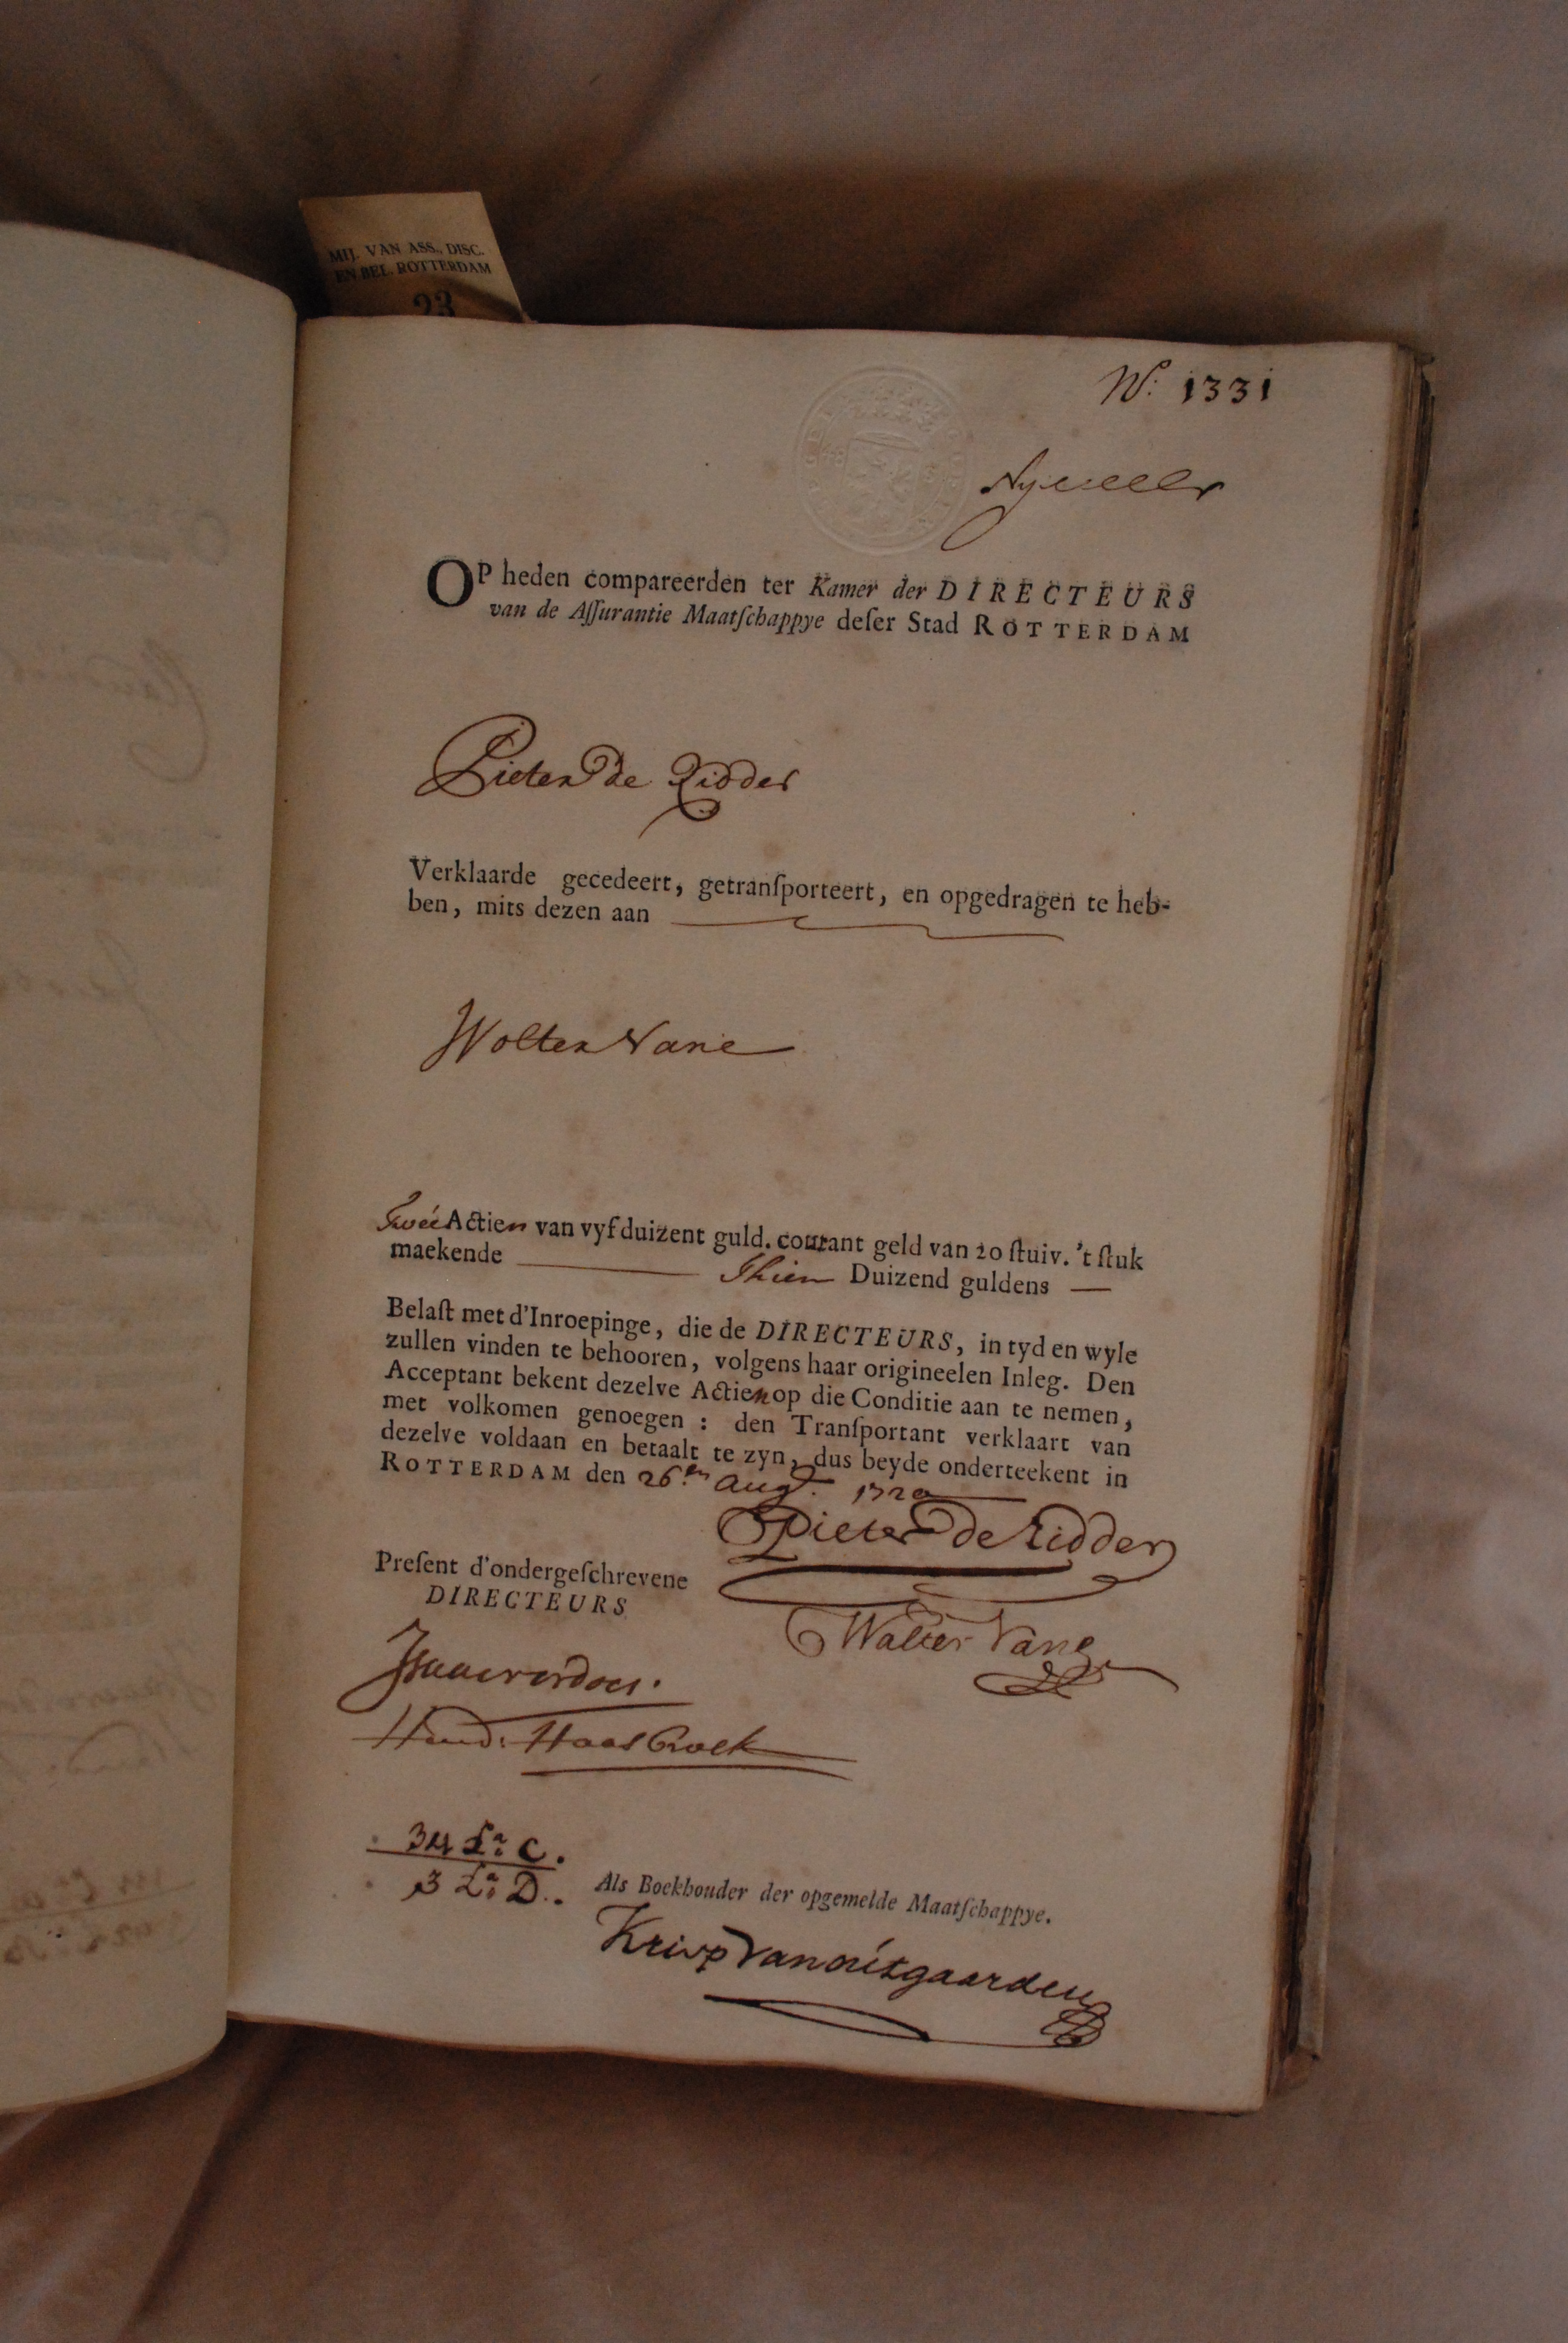 MIJ. VAN ASS., DISC.
EN BEL. ROTTERDAM
23
N:o 1331
OP heden compareerden ter Kamer der DIRECTEURS
van de Aſſurantie Maatſchappye deſer Stad ROTTERDAM
Pieter de Ridder
Verklaarde gecedeert, getranſporteert, en opgedragen te heb-
ben, mits dezen aan
Wolter Vane
Twee Actien van vyfduizent guld. courant geld van 20 ſtuiv. 't ſtuk
maekende Thien Duizend guldens
Belaſt met d'Inroepinge, die de DIRECTEURS, in tyd en wyle
zullen vinden te behooren, volgens haar origineelen Inleg. Den
Acceptant bekent dezelve Actien op die Conditie aan te nemen,
met volkomen genoegen : den Tranſportant verklaart van
dezelve voldaan en betaalt te zyn, dus beyde onderteekent in
ROTTERDAM den 26.en Augt. 1720
Pieter de Ridder
Preſent d'ondergeſchrevene
DIRECTEURS
Walter Vane
Hend: Haasbroek
34 La: C.
3 La: D.
Als Boekhouder der opgemelde Maatſchappye.